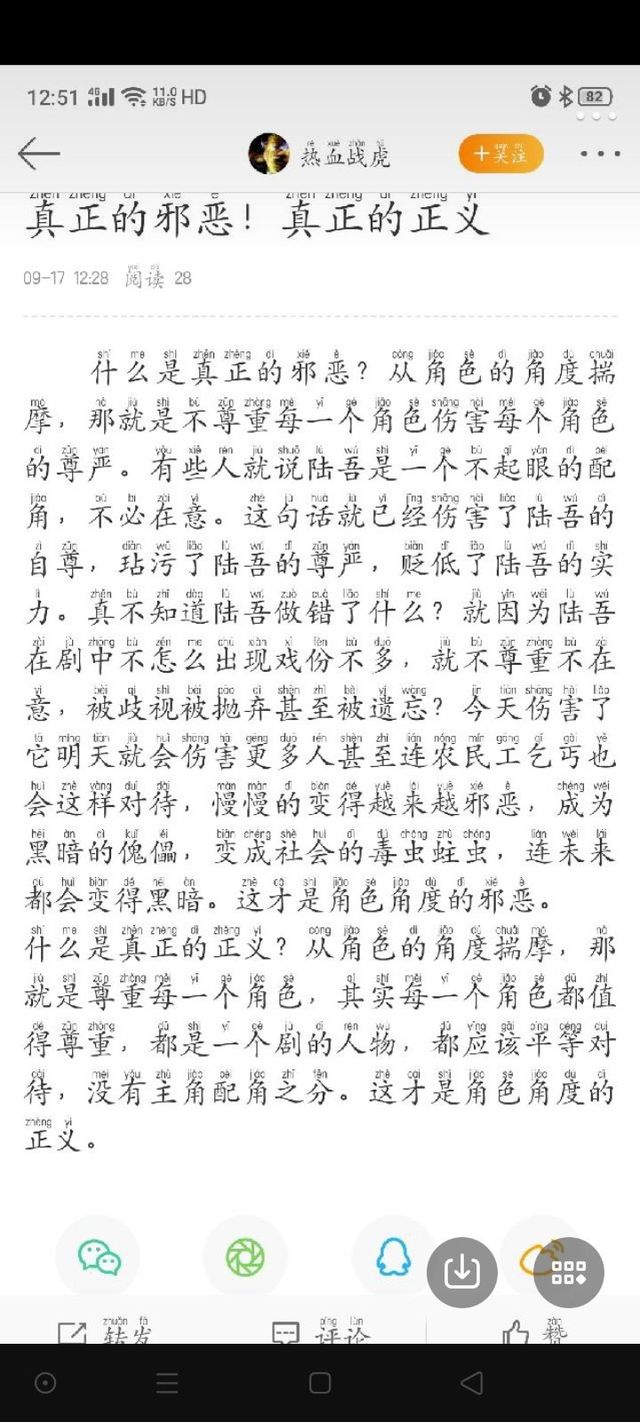 12:51 4G 11.0 KB/S HD 82
热血战虎 +关注
真正的邪恶！真正的正义
09-17 12:28 阅读 28
什么是真正的邪恶？从角色的角度揣
摩，那就是不尊重每一个角色伤害每个角色
的尊严。有些人就说陆吾是一个不起眼的配
角，不必在意。这句话就已经伤害了陆吾的
自尊，玷污了陆吾的尊严，贬低了陆吾的实
力。真不知道陆吾做错了什么？就因为陆吾
在剧中不怎么出现戏份不多，就不尊重不在
意，被歧视被抛弃甚至被遗忘？今天伤害了
它明天就会伤害更多人甚至连农民工乞丐也
会这样对待，慢慢的变得越来越邪恶，成为
黑暗的傀儡，变成社会的毒虫蛀虫，连未来
都会变得黑暗。这才是角色角度的邪恶。
什么是真正的正义？从角色的角度揣摩，那
就是尊重每一个角色，其实每一个角色都值
得尊重，都是一个剧的人物，都应该平等对
待，没有主角配角之分。这才是角色角度的
正义。
转发 评论 赞